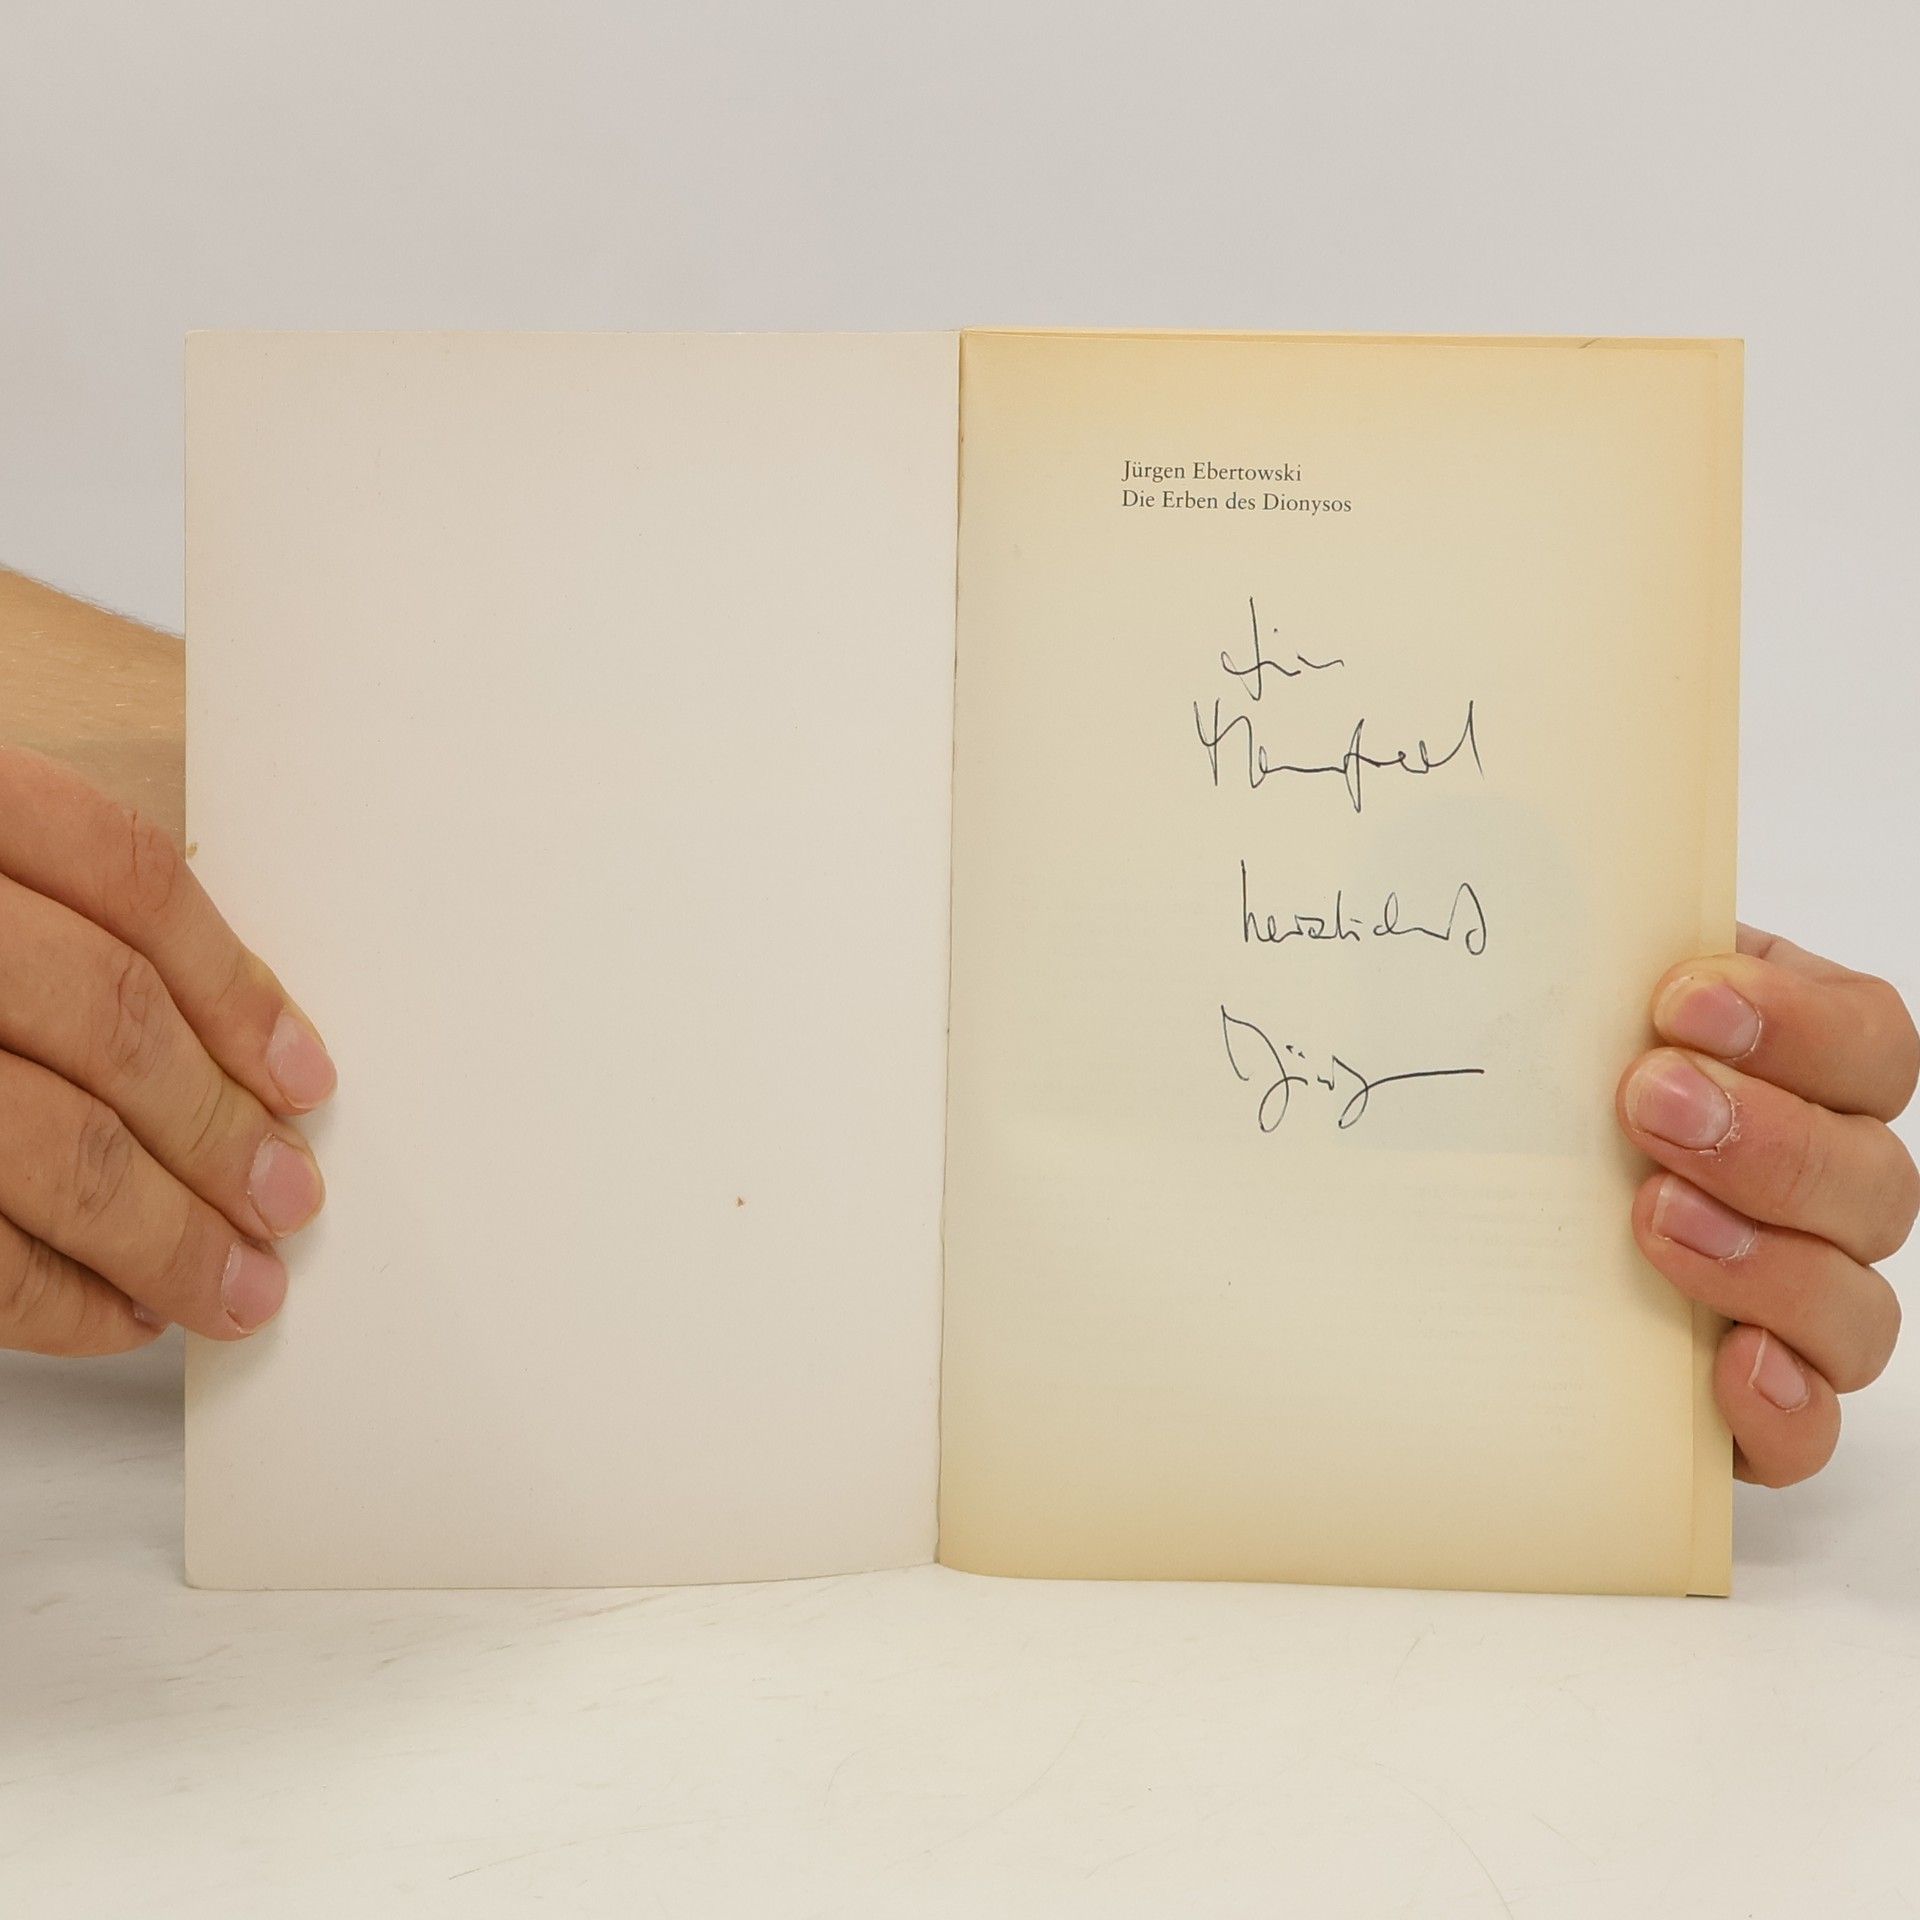 Jürgen Ebertowski
Die Erben des Dionysos
für
Manfred
herzlichst
Jürgen